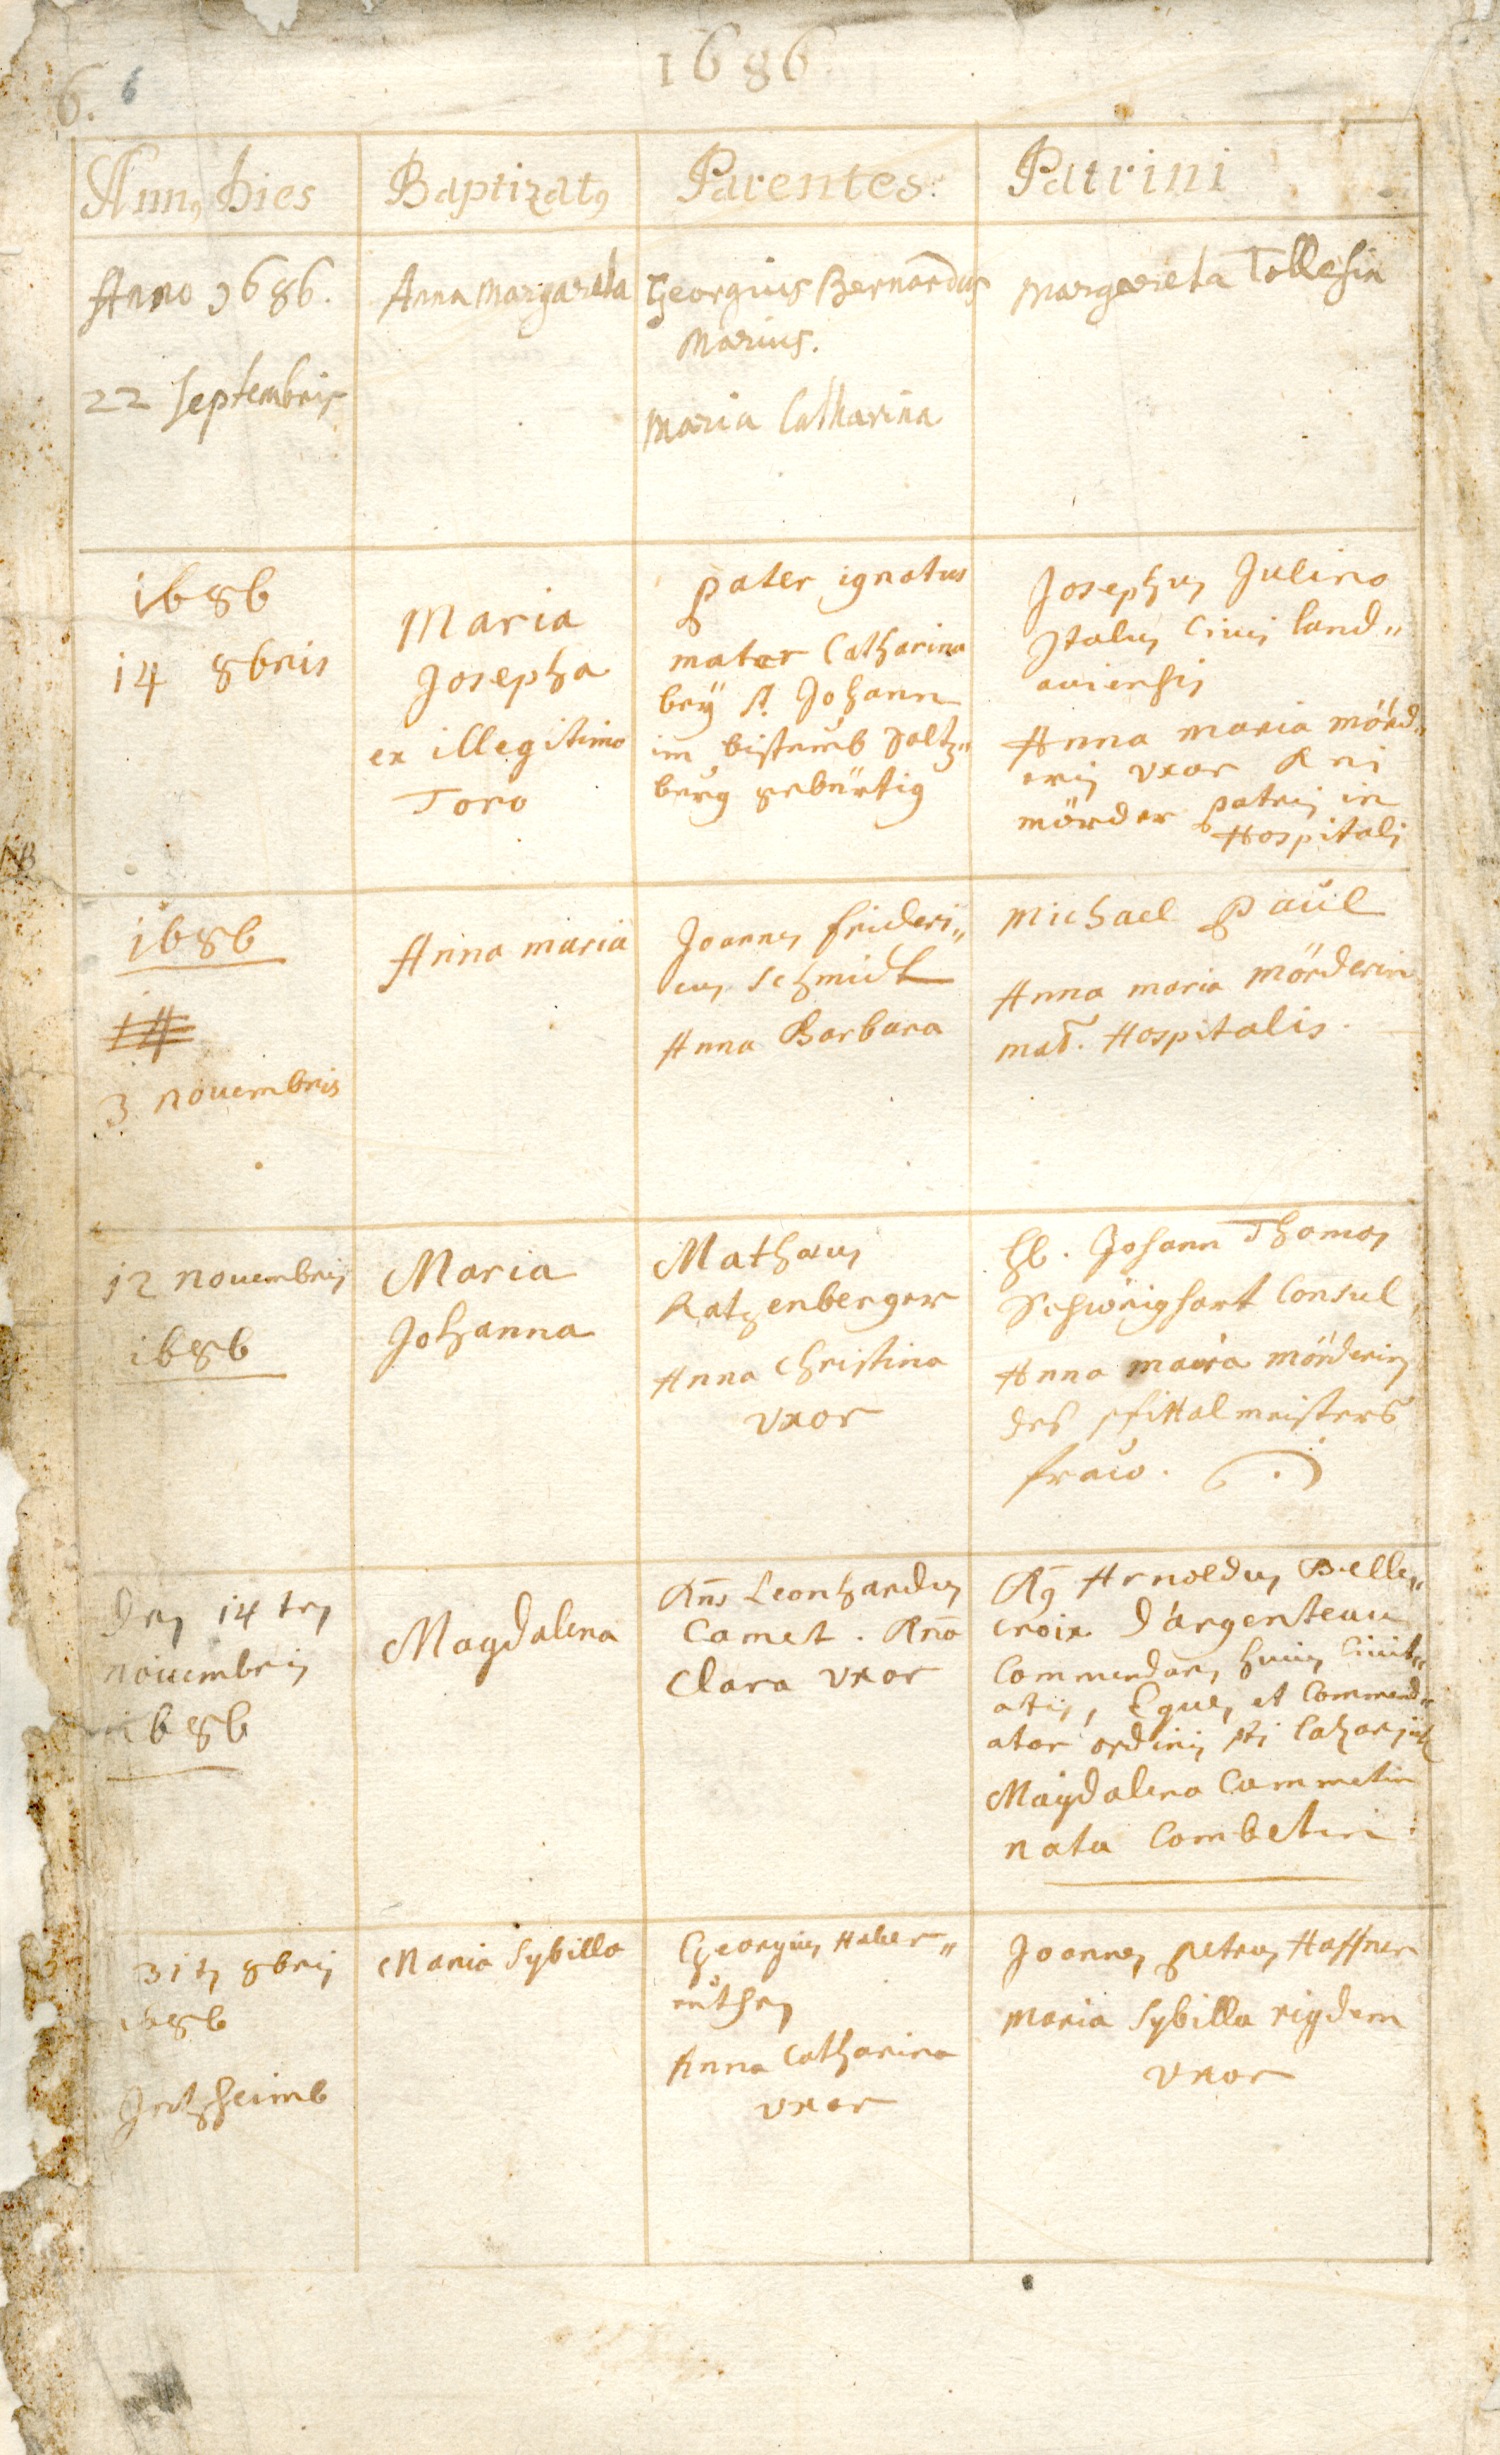 1686
6. 6
Annꝰ Dies
Baptizatꝰ
Parentes:
Patrini
Anno 1686.
22 Septembris
Anna Margareta
Georgius Bernardus
Marius.
Maria Catharina
Margareta Tollesin
1686
14 8bris
Maria
Josepha
ex illegitimo
Toro
pater ignotus
mater Catharina
bey St. Johann
im bistumb Saltz„
burg gebürtig
Josephus Julino
Italus Civis land„
aviensis
Anna maria mörd„
erin vxor
mörder patris in
Hospitali
1686
14
3 novembris
Anna maria
Joannes frideri„
cus Schmidt
Anna Barbara
Michael Paul
Anna maria Mörderin
mat. Hospitalis.
12 novembris
1686
Maria
Johanna
Mathæus
Katzenberger
Anna Christina
vxor
H. Johann Thomas
Schweighart Consul
Anna maria mörderin
des spittalmeisters
fraw.
den 14 ten
novembris
1686
Magdalena
Leonhardus
Camet.
Clara vxor
Arnoldus Belle„
croix d'argenteau
Commendans huius Civit„
atis, Eques et Commend„
ator ordinis Sti
Magdalena Cammetin
nata Combetin
31 8bris
1686
Maria Sybilla
Georgius Haber„
Anna Catharina
vxor
Joannes petrus Haffner
Maria Sybilla eigdem
vxor